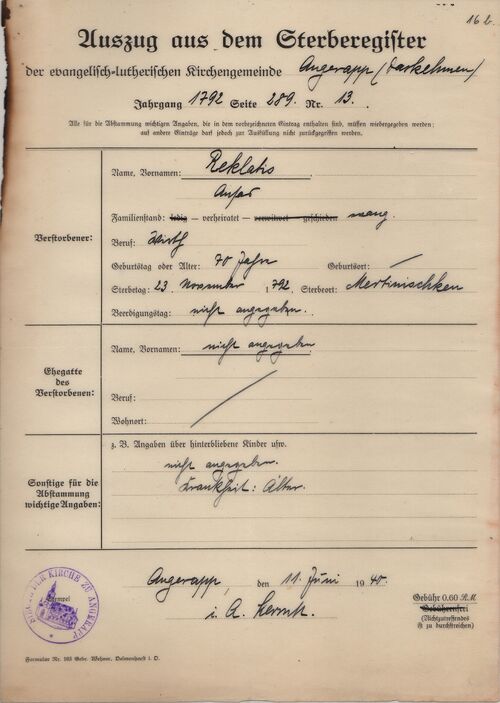 16 b.
Auszug aus dem Sterberegister
der evangelisch-lutherischen Kirchengemeinde Angerapp (Darkehmen)
Jahrgang 1792 Seite 289. Nr. 13.
Alle für die Abstammung wichtigen Angaben, die in dem vorbezeichneten Eintrag enthalten sind, müssen wiedergegeben werden;
auf andere Einträge darf jedoch zur Ausfüllung nicht zurückgegriffen werden.
Verstorbener:
Name, Vornamen: Reklatis
Ansas
Familienstand: ledig – verheiratet – verwitwet – geschieden
Beruf: Wirth
Geburtstag oder Alter: 70 Jahre Geburtsort: /
Sterbetag: 23. November 1792 Sterbeort: Mertinischken
Beerdigungstag: nicht angegeben.
Ehegatte
des
Verstorbenen:
Name, Vornamen: nicht angegeben
Beruf:
Wohnort:
Sonstige für die
Abstammung
wichtige Angaben:
z. B. Angaben über hinterbliebene Kinder usw.
nicht angegeben.
Krankheit: Alter.
Angerapp, den 11. Juni 1940.
i. A.
Stempel
DER KIRCHE ZU ANGERAPP
Gebühr 0.60 R.M.
Gebührenfrei
(Nichtzutreffendes
ist zu durchstreichen)
Formular Nr. 103 Gebr. Wehner, Delmenhorst i. O.